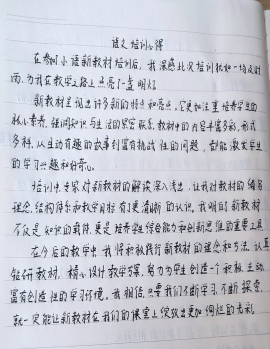 语文培训心得
在参加小语新教材培训后，我深感此次培训犹如一场及时
雨，为我在教学之路上点亮了一盏明灯。
新教材呈现出许多新的特点和亮点。它更加注重培养学生的
核心素养，强调知识与生活的紧密联系。教材中的内容丰富多彩，形式
多样，从生动有趣的故事到富有挑战性的问题，都能激发学生
的学习兴趣和好奇心。
培训中，专家对新教材的解读深入浅出，让我对教材的编写
理念、结构体系和教学目标有了更清晰的认识。我明白新教材
不仅是知识的载体，更是培养学生综合能力和创新思维的重要工具。
在今后的教学中，我将积极践行新教材的理念和方法，认真
钻研教材，精心设计教学方案，努力为学生创造一个积极、主动、
富有创造性的学习环境。我相信，只要我们不断学习、不断探索，
就一定能让新教材在我们的课堂上绽放出更加绚烂的光彩。